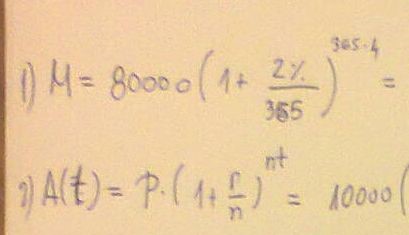 1) M = 80000 (1 + 2% / 365)^365·4 =
2) A(t) = P · (1 + r/n)^nt = 10000 (